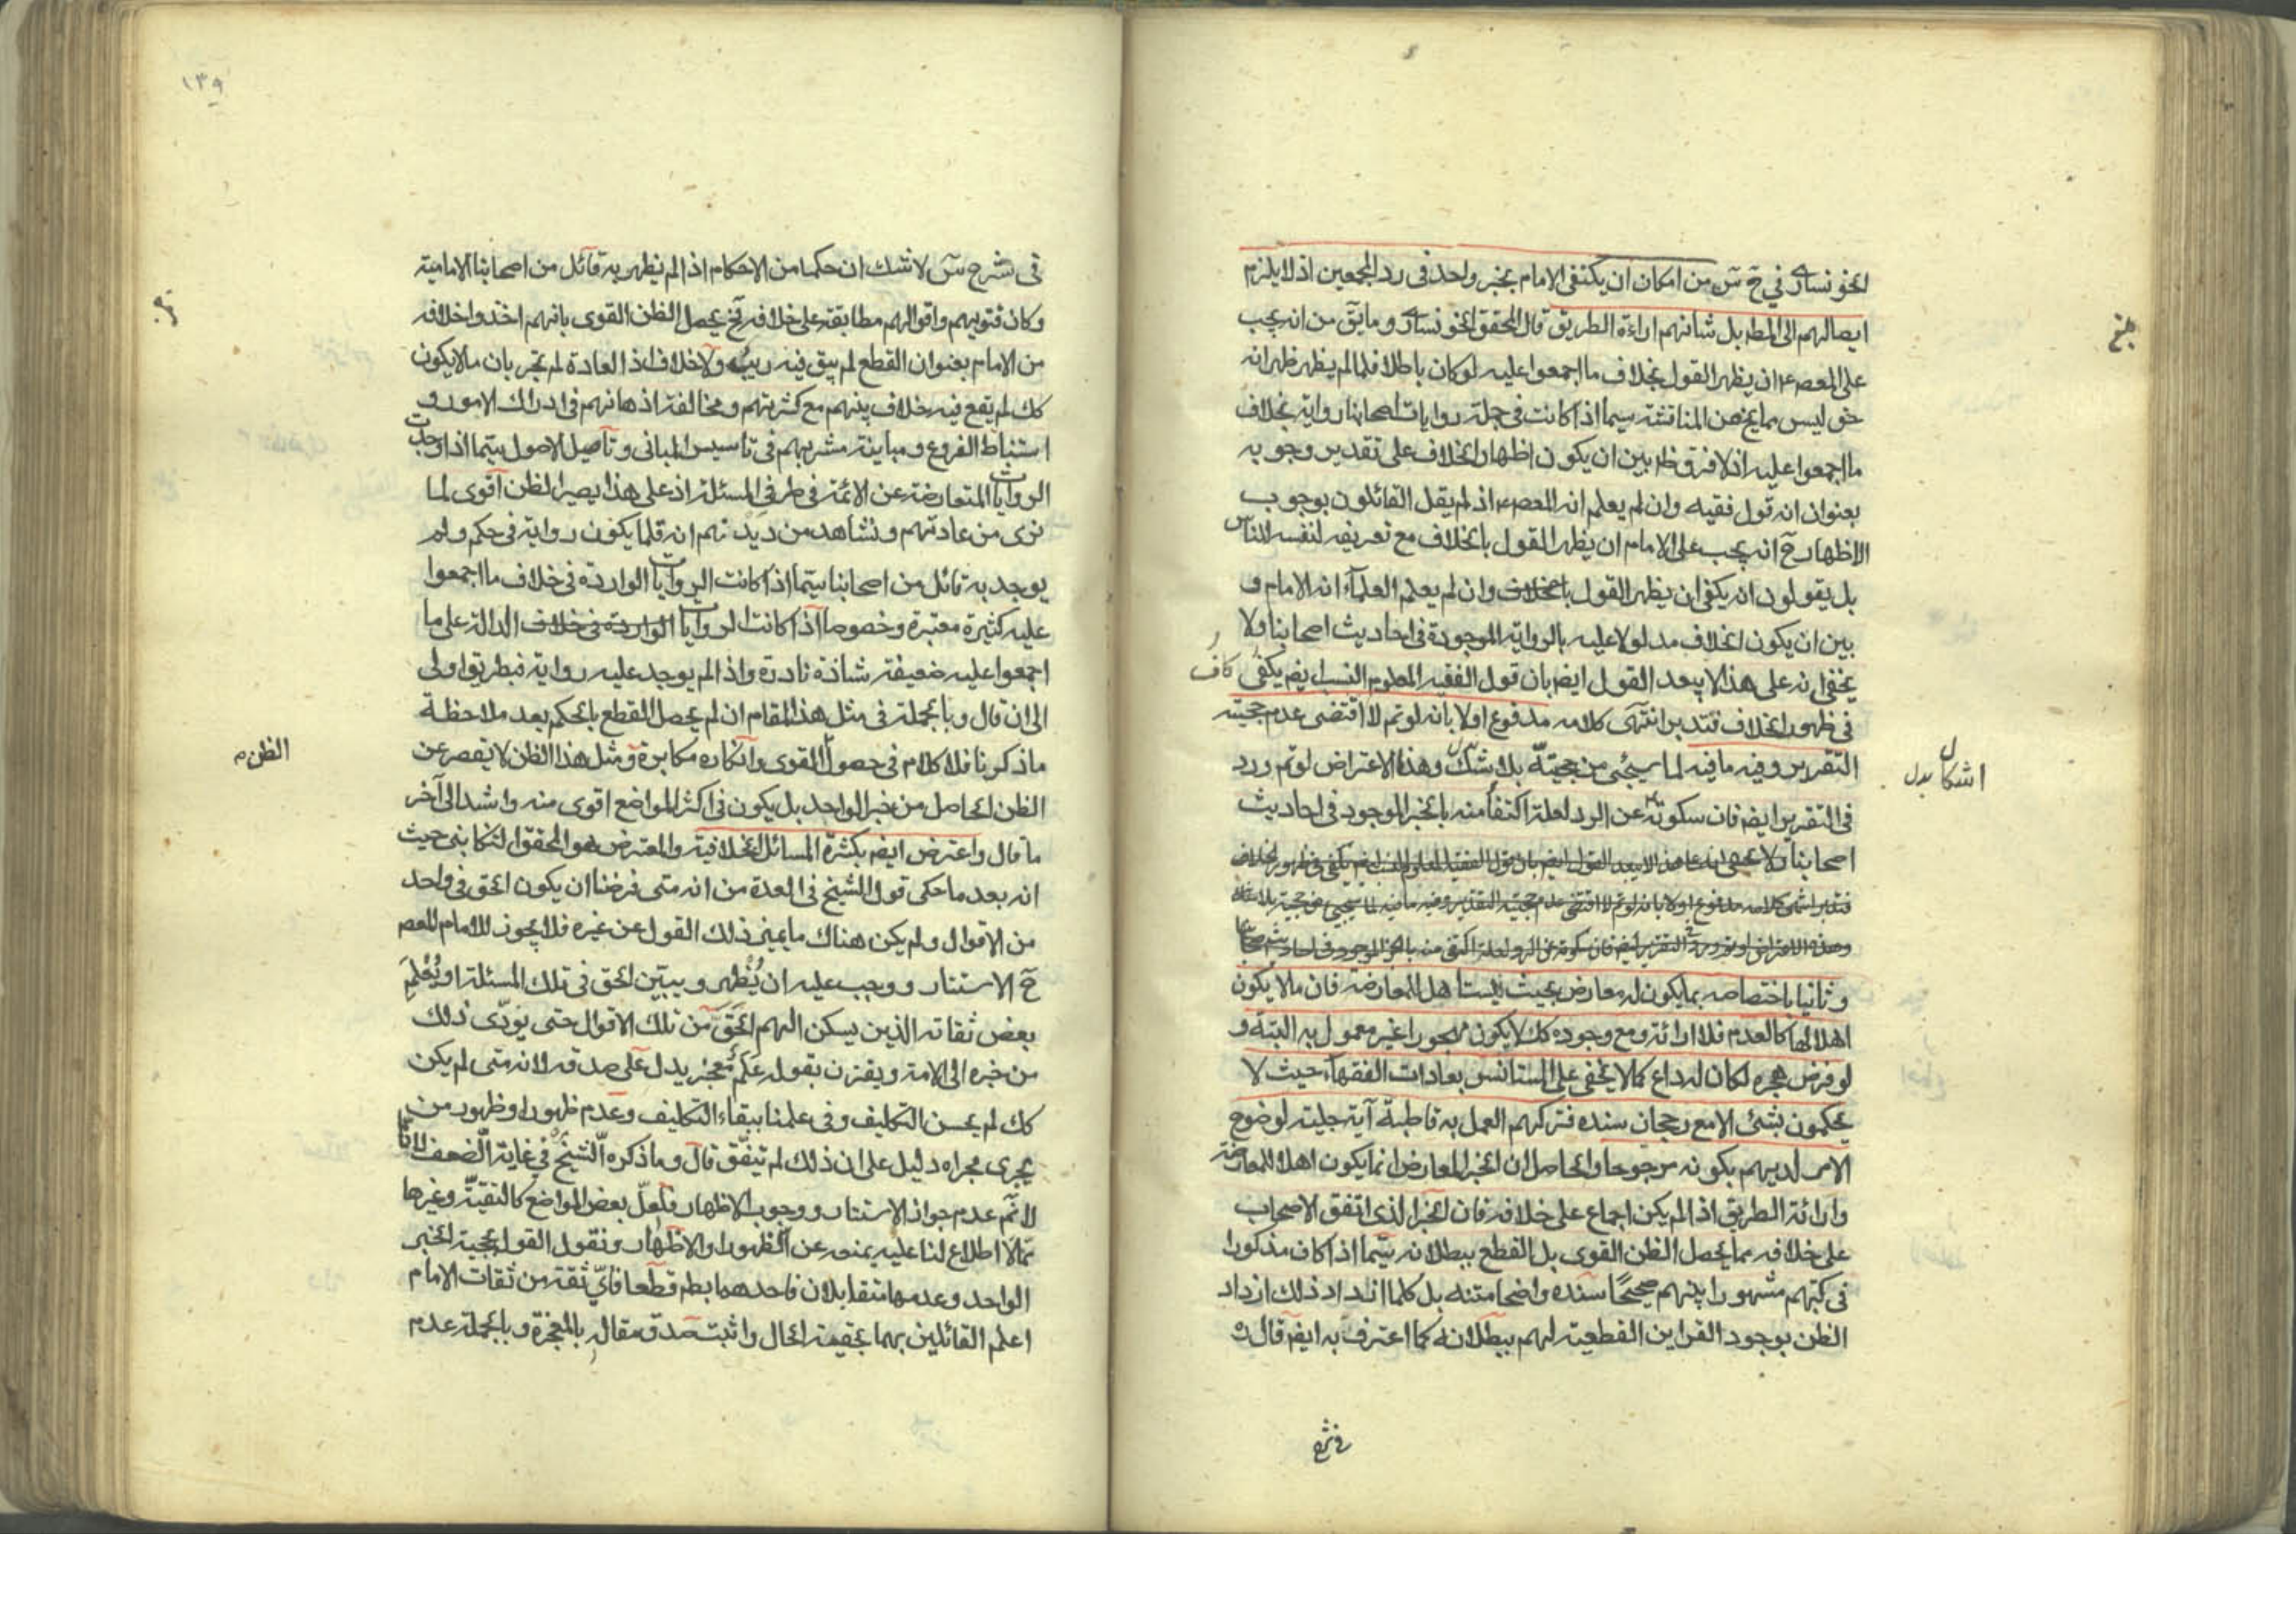 الخونساري في ح س من امكان ان يكتفى الامام بخبر واحد فى رد المجمعين اذ لا يلزم
ايصالهم الى المط بل شانهم اراءة الطريق قال المحقق الخونساري وما يق من انه يجب
على المعصوم ان يظهر القول بخلاف ما اجمعوا عليه لو كان باطلا فلما لم يظهر ظهر انه
حق ليس مما يخ من المناقشة سيما اذا كانت فى جملة روايات اصحابنا رواية بخلاف
ما اجمعوا عليه اذ لا فرق ظ بين ان يكون اظهار الخلاف على تقدير وجوبه
بعنوان انه قول فقيه وان لم يعلم انه المعصوم اذ لم يقل القائلون بوجوب
الاظهار ح انه يجب على الامام ان يظهر القول بالخلاف مع تعريفه لنفسه للناس
بل يقولون انه يكفى ان يظهر القول بالخلاف وان لم يعلم العلماء انه الامام و
بين ان يكون الخلاف مدلولا عليه بالرواية الموجودة فى احاديث اصحابنا ولا
يخفى انه على هذا لا يبعد القول ايضم بان قول الفقيه المعلوم النسب ايضم يكفى
كاف
فى ظهور الخلاف فتدبر انتهى كلامه مدفوع اولا بانه لو تم لا اقتضى عدم حجيته
التقرير وفيه ما فيه لما سيجئى من حجيته بلا شك وهذا الاعتراض لو تم ورد
اشكال بدل
فى التقرير ايضم فان سكوته عن الرد لعله اكتفأ منه بالخبر الموجود فى احاديث
اصحابنا ولا يخفى انه على هذا لا يبعد القول ايضم بان قول الفقيه المعلوم النسب ايضم يكفى فى ظهور الخلاف
فتدبر انتهى كلامه مدفوع اولا بانه لو تم لا اقتضى عدم حجيته التقرير وفيه ما فيه لما سيجيئ من حجيته بلا شك
وهذا الاعتراض لو تم ورد فى التقرير ايضم فان سكوته عن الرد لعله اكتفى منه بالخبر الموجود فى احاديث اصحابنا
وثانيا باختصاصه بما يكون له معارض بحيث يستاهل للمعارضة فان ما لا يكون
اهلا لها كالعدم فلا ارائة ومع وجوده كك لا يكون مهجورا غير معمول به البتة و
لو فرض هجره لكان له داع كما لا يخفى على المستانس بعادات الفقهاء حيث لا
يحكمون بشئ الا مع رجحان سنده فتركهم العمل به قاطبة آية جلية لوضوح
الامر لديهم بكونه مرجوحا والحاصل ان الخبر المعارض انما يكون اهلا للمعارضة
وارائة الطريق اذا لم يكن اجماع على خلافه فان الخبر الذى اتفق الاصحاب
على خلافه مما يحصل الظن القوى بل القطع ببطلانه سيما اذا كان مذكورا
فى كتبهم مشهورا بينهم صحيحا سنده واضحا متنه بل كلما ازداد ذلك ازداد
الظن بوجود القراين القطعية لهم ببطلانه كما اعترف به ايضم قال
فى شرح
١٣٩
فى شرح س لا شك ان حكما من الاحكام اذا لم يظهر به قائل من اصحابنا الامامية
وكان فتويهم واقوالهم مطابقة على خلافه فح يحصل الظن القوى بانهم اخذوا خلافه
من الامام بعنوان القطع لم يبق فيه ريب ولا خلاف اذ العادة لم تجر بان ما لا يكون
كك لم يقع فيه خلاف بينهم مع كثرتهم ومخالفة اذهانهم فى ادراك الامور و
استنباط الفروع ومباينة مشربهم فى تاسيس المبانى وتاصيل الاصول سيما اذا وجدت
الروايات المتعارضة عن الائمة فى طرفى المسئلة اذ على هذا يصير الظن اقوى لما
نرى من عادتهم ونشاهد من ديدنهم انه قلما يكون رواية فى حكم ولم
يوجد به قائل من اصحابنا سيما اذا كانت الروايات الواردة فى خلاف ما اجمعوا
عليه كثيرة معتبرة وخصوصا اذا كانت الروايات الواردة فى خلاف الدالة على ما
اجمعوا عليه ضعيفة شاذة نادرة واذا لم يوجد عليه رواية فبطريق اولى
الى ان قال وبالجملة فى مثل هذا المقام ان لم يحصل القطع بالحكم بعد ملاحظة
ماذكرنا فلا كلام فى حصول القوى وانكاره مكابرة ومثل هذا الظن لا يقصر عن
الظن م
الظن الحاصل من خبر الواحد بل يكون فى اكثر المواضع اقوى منه واشد الى آخر
ما قال واعترض ايضم بكثرة المسائل الخلافية والمعترض هو المحقق التنكابنى حيث
انه بعد ما حكى قول الشيخ فى العدة من انه متى فرضنا ان يكون الحق فى واحد
من الاقوال ولم يكن هناك ما يميز ذلك القول عن غيره فلا يجوز للامام المعصوم
ح الاستتار ووجب عليه ان يظهر ويبين الحق فى تلك المسئلة او يعلم
بعض ثقاته الذين يسكن اليهم الحق من تلك الاقوال حتى يؤدى ذلك
من خبره الى الامة ويقترن بقوله علم معجز يدل على صدقه لانه متى لم يكن
كك لم يحسن التكليف وفى علمنا ببقاء التكليف وعدم ظهوره او ظهور من
يجرى مجراه دليل على ان ذلك لم يتفق قال وما ذكره الشيخ فى غاية الضعف لانا
لا نم عدم جواز الاستتار ووجوب الاظهار فلعل بعض المواضع كالتقية وغيرها
مما لا اطلاع لنا عليه يمنعه عن الظهور او الاظهار ونقول القول بحجية الخبر
الواحد وعدمها متقابلان فاحدهما بط قطعا فاي ثقة من ثقات الامام
اعلم القائلين بهما بحقيقة الحال واثبت صدق مقاله بالمعجزة وبالجملة عدم